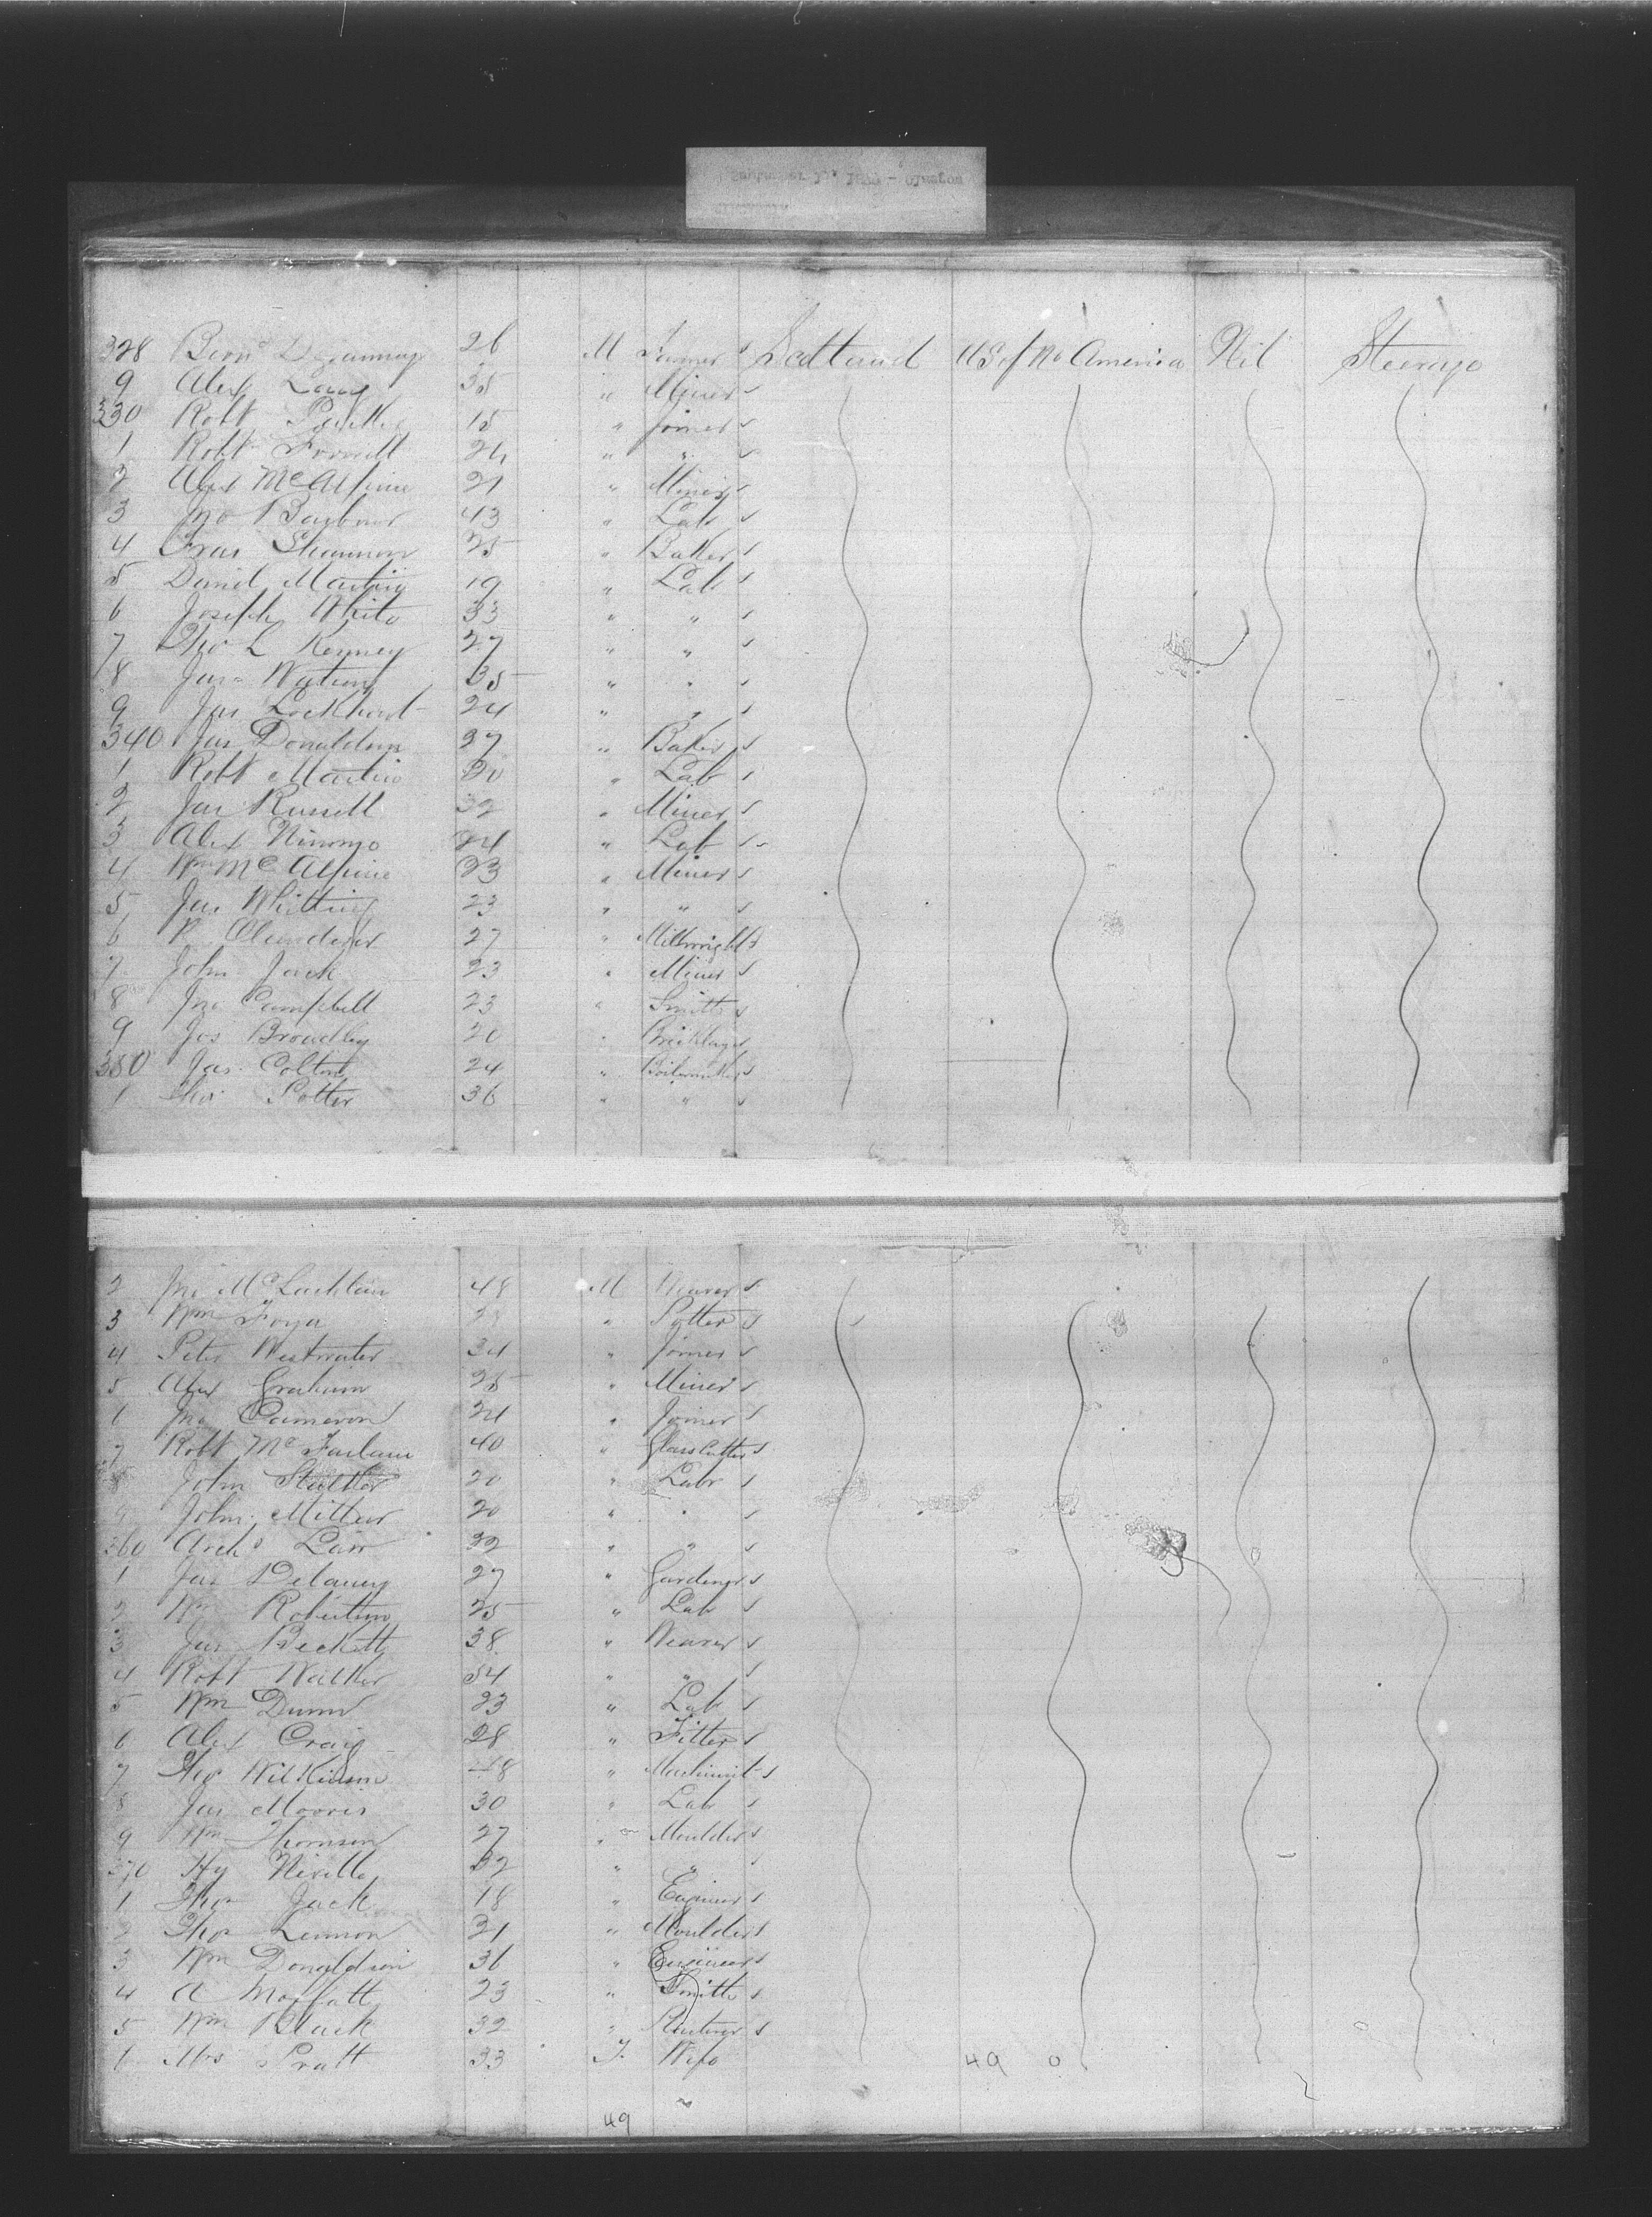 328 26 M Farmer Scotland US of No America Nil Steerage
9 Alex 35 " Miner
330 Robt 15 " Joiner
1 Robt 24 " "
2 Alex McAlpine 21 " Miner
3 Jno Barbour 43 " Lab
4 Fras Shannon 25 " Baker
5 Daniel Martin 19 " Lab
6 Joseph White 33 " "
7 Tho L Kenney 27 " "
8 Jas Watson 35 " "
9 Jas Lockhart 24 " "
340 Jas Donaldson 27 " Baker
1 Robt Martin " Lab
2 Jas Russell 32 " Miner
3 Alex 24 " Lab
4 Wm McAlpine 23 " Miner
5 Jas 23 " "
6 R 27 " Millwright
7 John Jack 23 " Miner
8 Jno Campbell 23 " Smith
9 Jos Broadley 20 " Bricklayer
350 Jas Colton 24 " Boilermaker
1 Thos Potter 36 " "
2 Jno McLachlan 48 M Weaver
3 Wm " Potter
4 Peter Westwater 34 " Joiner
5 Alex Graham 25 " Miner
6 Jno Cameron 24 " Joiner
7 Robt McFarlane 40 " Glass Cutter
8 John 20 " Labr
9 John 20 " "
360 Archd 32 " "
1 Jas Delaney 27 " Gardener
2 Wm Robertson 25 " Lab
3 Jas Beckett 38 " Weaver
4 Robt Walker 54 " "
5 Wm Dunn 23 " Lab
6 Alex Craig 28 " Fitter
7 Tho Wilkinson 48 " Machinist
8 Jas Morris 30 " Lab
9 Wm Thomson 27 " Moulder
370 Hy Neville 32 " "
1 Thos Jack 18 " Engineer
2 Thos Lennon 21 " Moulder
3 Wm Donaldson 36 " Engineer
4 A Moffatt 23 " Smith
5 Wm Black 32 "
6 Mrs Pratt 33 F. Wife 49 0
49